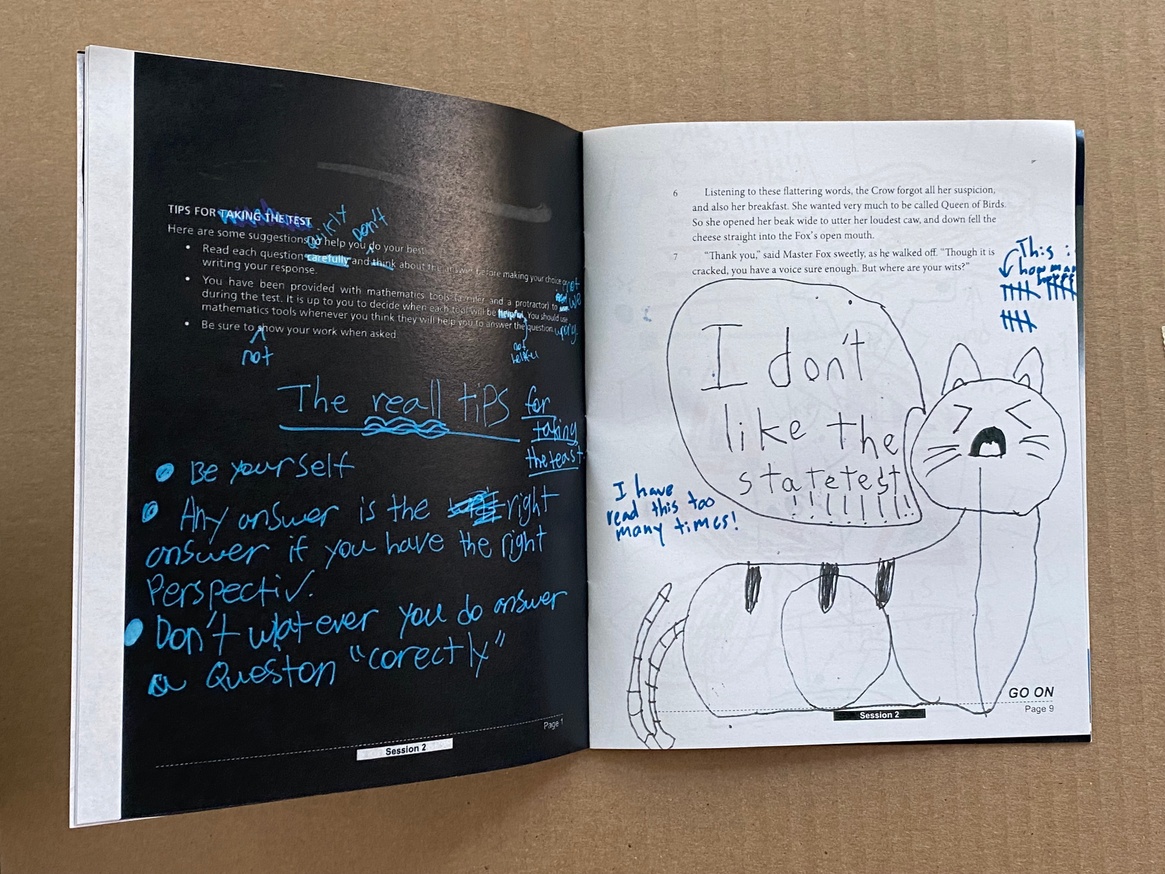 TIPS FOR TAKING THE TEST
Here are some suggestions to help you do your best:
quickly
Don't
Read each question carefully and think about the answer before making your choice or
writing your response.
You have been provided with mathematics tools (a ruler and a protractor) to
during the test. It is up to you to decide when each tool will be helpful. You should use
mathematics tools whenever you think they will help you to answer the question
not
use
wrong
not
helpful
Be sure to show your work when asked.
not
The reall tips for
taking
the teast
Be yourself
Any answer is the right
answer if you have the right
Perspectiv.
Don't whatever you do answer
a Queston "corectly"
Page 1
Session 2
6 Listening to these flattering words, the Crow forgot all her suspicion,
and also her breakfast. She wanted very much to be called Queen of Birds.
So she opened her beak wide to utter her loudest caw, and down fell the
cheese straight into the Fox's open mouth.
7 "Thank you," said Master Fox sweetly, as he walked off. "Though it is
cracked, you have a voice sure enough. But where are your wits?"
This :
how man
I don't
like the
statetest
!!!!!!!
I have
read this too
many times!
GO ON
Session 2
Page 9